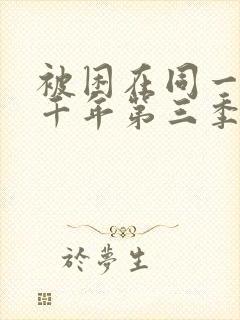 被困在同一
千年第三季
於夢生